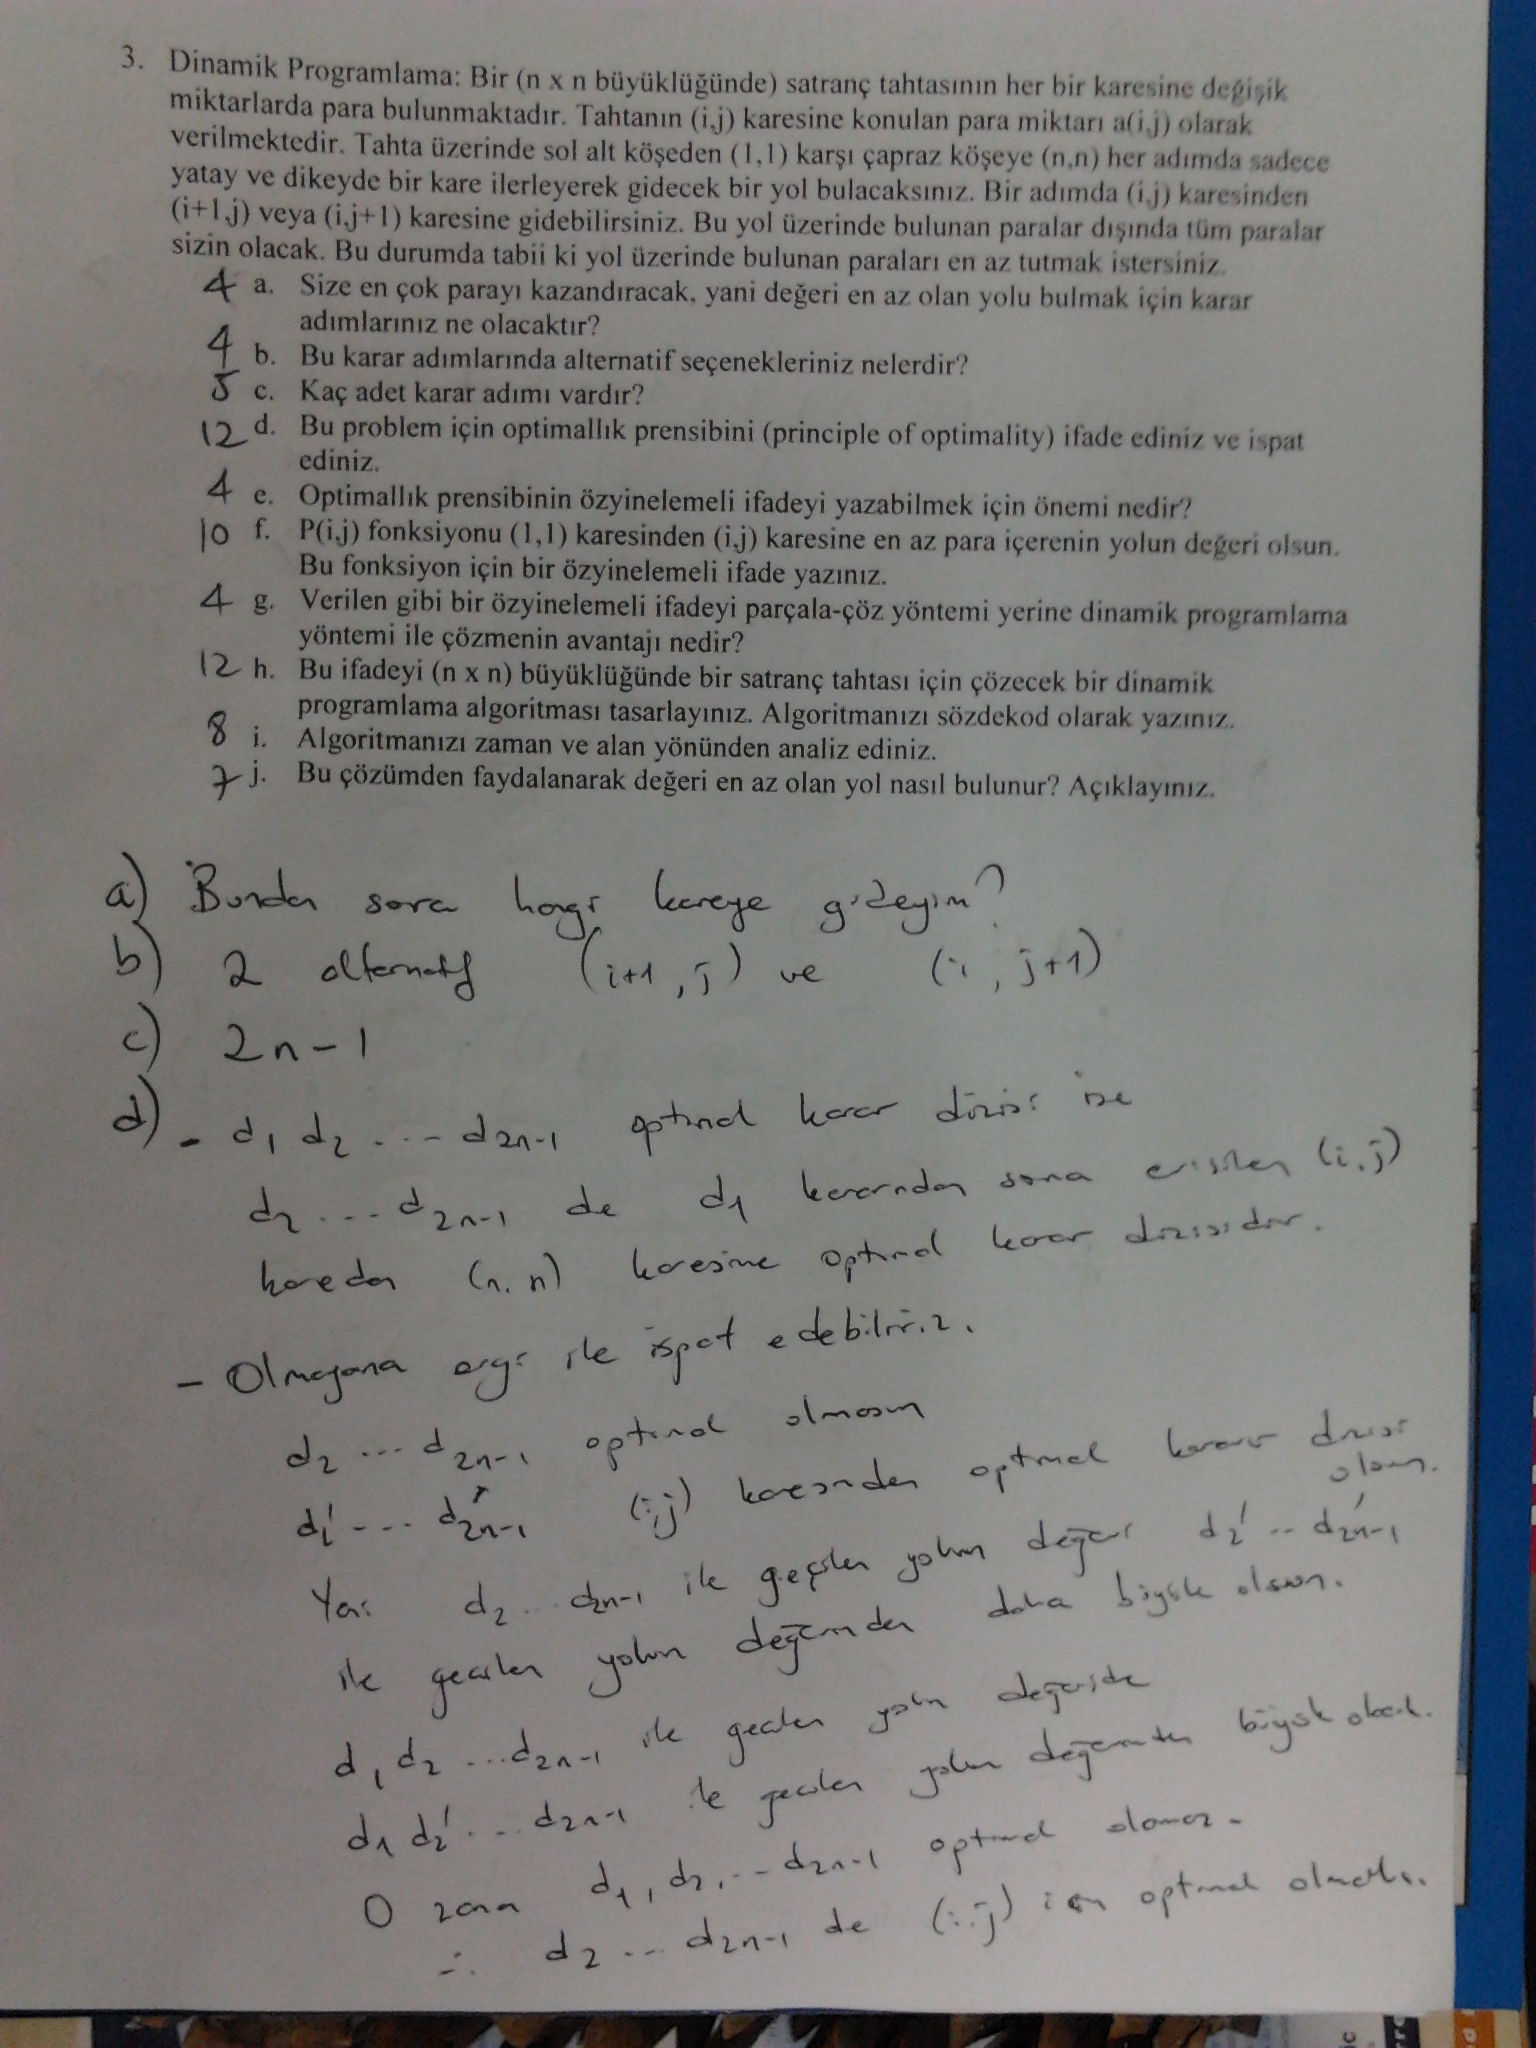 3. Dinamik Programlama: Bir (n x n büyüklüğünde) satranç tahtasının her bir karesine değişik
miktarlarda para bulunmaktadır. Tahtanın (i,j) karesine konulan para miktarı a(i,j) olarak
verilmektedir. Tahta üzerinde sol alt köşeden (1,1) karşı çapraz köşeye (n,n) her adımda sadece
yatay ve dikeyde bir kare ilerleyerek gidecek bir yol bulacaksınız. Bir adımda (i,j) karesinden
(i+1,j) veya (i,j+1) karesine gidebilirsiniz. Bu yol üzerinde bulunan paralar dışında tüm paralar
sizin olacak. Bu durumda tabii ki yol üzerinde bulunan paraları en az tutmak istersiniz.
4 a. Size en çok parayı kazandıracak, yani değeri en az olan yolu bulmak için karar
adımlarınız ne olacaktır?
4 b. Bu karar adımlarında alternatif seçenekleriniz nelerdir?
5 c. Kaç adet karar adımı vardır?
12 d. Bu problem için optimallık prensibini (principle of optimality) ifade ediniz ve ispat
ediniz.
4 e. Optimallık prensibinin özyinelemeli ifadeyi yazabilmek için önemi nedir?
10 f. P(i,j) fonksiyonu (1,1) karesinden (i,j) karesine en az para içerenin yolun değeri olsun.
Bu fonksiyon için bir özyinelemeli ifade yazınız.
4 g. Verilen gibi bir özyinelemeli ifadeyi parçala-çöz yöntemi yerine dinamik programlama
yöntemi ile çözmenin avantajı nedir?
12 h. Bu ifadeyi (n x n) büyüklüğünde bir satranç tahtası için çözecek bir dinamik
programlama algoritması tasarlayınız. Algoritmanızı sözdekod olarak yazınız.
8 i. Algoritmanızı zaman ve alan yönünden analiz ediniz.
7 j. Bu çözümden faydalanarak değeri en az olan yol nasıl bulunur? Açıklayınız.
a) Bundan sonra hangi kareye gideyim?
b) 2 alternatif (i+1, j) ve (i, j+1)
c) 2n-1
d) - d1 d2 ... d2n-1 optimal karar dizisi ise
d2 ... d2n-1 de d1 kararından sonra erişilen (i,j)
kareden (n,n) karesine optimal karar dizisidir.
- Olmayana ergi ile ispat edebiliriz.
d2 ... d2n-1 optimal olmasın
di' ... d2n-1' (i,j) karesinden optimal karar dizisi
olsun.
Yani d2 ... d2n-1 ile geçilen yolun değeri d2' .. d2n-1'
ile geçilen yolun değerinden daha büyük olsun.
d1 d2 ... d2n-1 ile geçilen yolun değeride
d1 d2' ... d2n-1 ile geçilen yolun değerinden büyük olacak.
O zaman d1, d2, ... d2n-1 optimal olamaz.
∴ d2 ... d2n-1 de (i,j) için optimal olmalı.